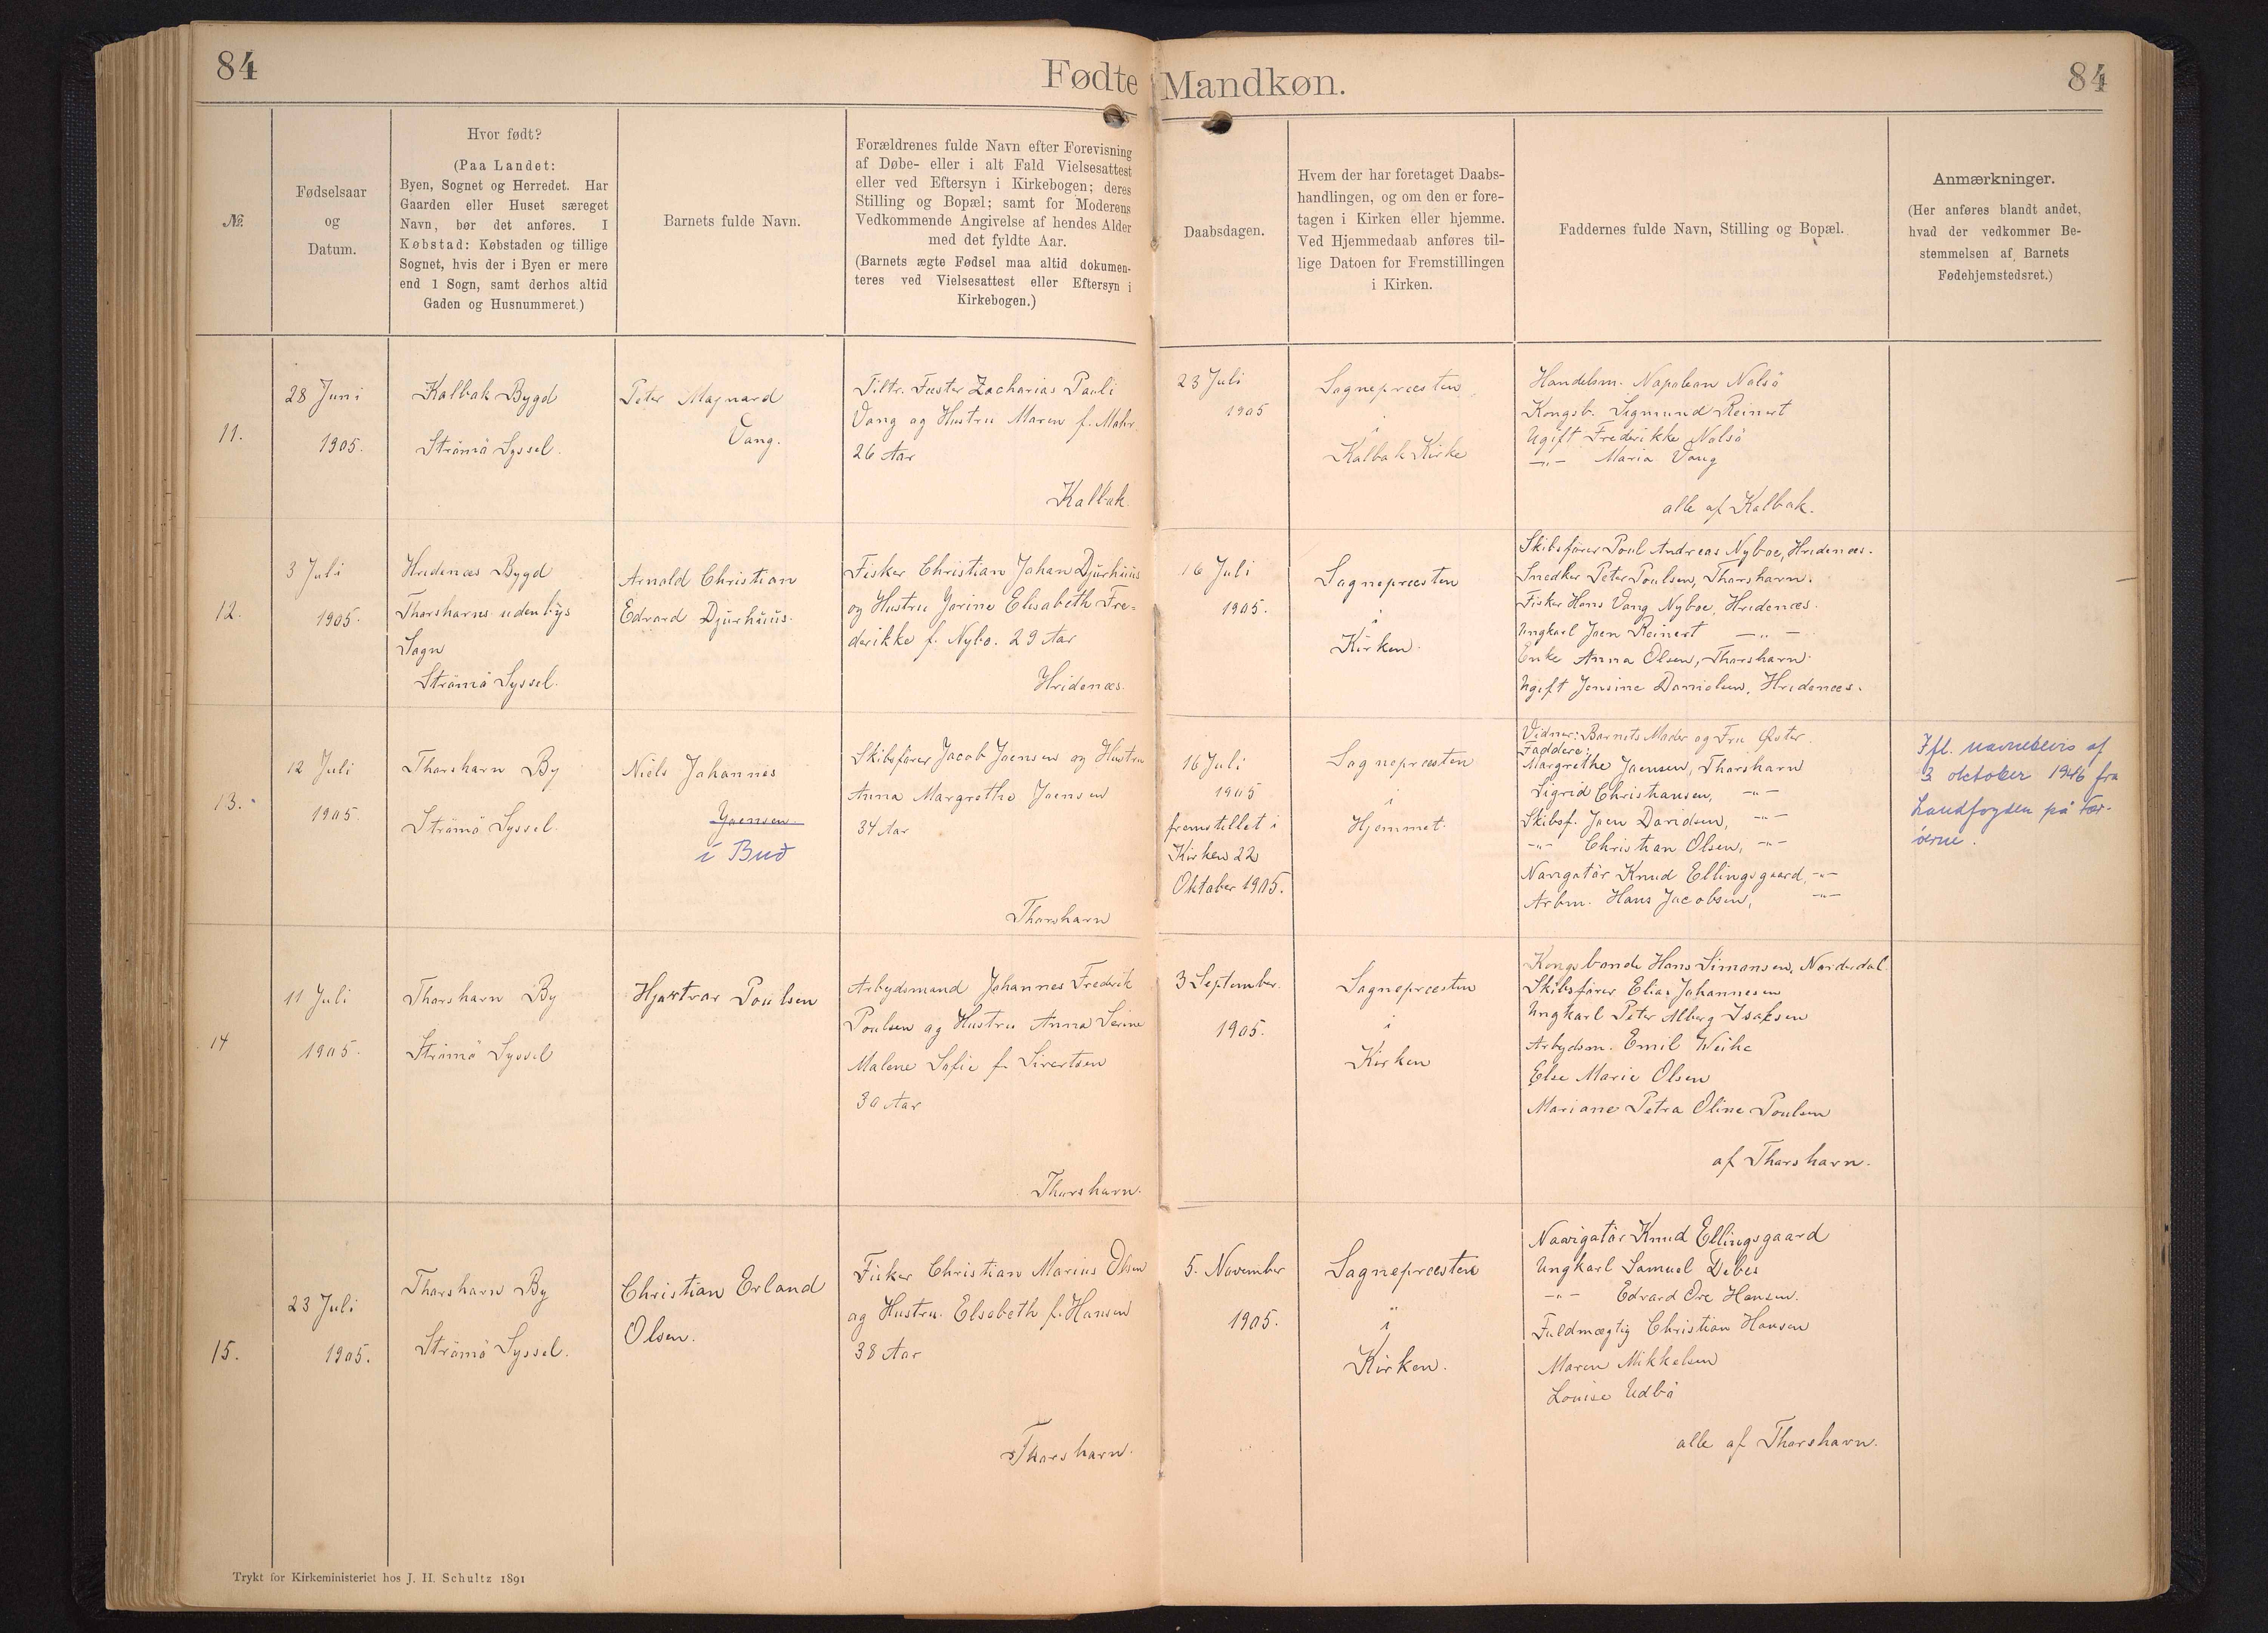 84
Fødte Mandkøn.
84
№
Fødselsaar
og
Datum.
Hvor født?
(Paa Landet:
Byen, Sognet og Herredet. Har
Gaarden eller Huset særeget
Navn, bør det anføres. I
Købstad: Købstaden og tillige
Sognet, hvis der i Byen er mere
end 1 Sogn, samt derhos altid
Gaden og Husnummeret.)
Barnets fulde Navn.
Forældrenes fulde Navn efter Forevisning
af Døbe- eller i alt Fald Vielsesattest
eller ved Eftersyn i Kirkebogen; deres
Stilling og Bopæl; samt for Moderens
Vedkommende Angivelse af hendes Alder
med det fyldte Aar.
(Barnets ægte Fødsel maa altid dokumen-
teres ved Vielsesattest eller Eftersyn i
Kirkebogen.)
Daabsdagen.
Hvem der har foretaget Daabs-
handlingen, og om den er fore-
tagen i Kirken eller hjemme.
Ved Hjemmedaab anføres til-
lige Datoen for Fremstillingen
i Kirken.
Faddernes fulde Navn, Stilling og Bopæl.
Anmærkninger.
(Her anføres blandt andet,
hvad der vedkommer Be-
stemmelsen af Barnets
Fødehjemstedsret.)
11.
28 Juni
1905.
Kalbak Bygd
Strömö Syssel.
Peter Magnard
Vang.
Tiltr. Fæster Zacharias Pauli
Vang og Hustru Maren f. Mohr.
26 Aar
Kalbak.
23 Juli
1905
Sognepræsten
i
Kalbak Kirke
Handelsm. Napolean Nolsö
Kongsb. Sigmund Reinert
Ugift Frederikke Nolsö
—"— Maria Vang
alle af Kalbak.
12.
3 Juli
1905.
Hvidenæs Bygd
Thorshavns udenbys
Sogn
Strömö Syssel.
Arnold Christian
Edvard Djurhuus.
Fisker Christian Johan Djurhuus
og Hustru Jorine Elisabeth Fre=
derikke f. Nybo. 29 Aar
Hvidenæs.
16 Juli
1905.
Sognepræsten
i
Kirken.
Skibsfører Poul Andreas Nyboe, Hvidenæs.
Snedker Peter Poulsen, Thorshavn.
Fisker Hans Vang Nyboe, Hvidenæs.
Ungkarl Joen Reinert —"—
Enke Anna Olsen, Thorshavn.
Ugift Jensine Danielsen, Hvidenæs.
13.
12 Juli
1905.
Thorshavn By
Strömö Syssel.
Niels Johannes
Joensen.
í Búð
Skibsfører Jacob Joensen og Hustru
Anna Margrethe Joensen
34 Aar
Thorshavn
16 Juli
1905
fremstillet i
Kirken 22
Oktober 1905.
Sognepræsten
i
Hjemmet.
Vidner: Barnets Moder og Fru Øster.
Faddere:
Margrethe Joensen, Thorshavn
Sigrid Christiansen, —"—
Skibsf. Joen Davidsen, —"—
—"— Christian Olsen, —"—
Navigatör Knud Ellingsgaard, —"—
Arbm. Hans Jacobsen, —"—
Ifl. navnebevis af
3. oktober 1946 fra
Landfogden på Fær-
öerne.
14
11 Juli
1905.
Thorshavn By
Strömö Syssel
Hjartvar Poulsen
Arbejdsmand Johannes Frederik
Poulsen og Hustru Anna Serine
Malene Sofie f. Sivertsen
30 Aar
Thorshavn.
3 September.
1905.
Sognepræsten
i
Kirken
Kongsbonde Hans Simonsen, Norderdal
Skibsfører Elias Johannesen
Ungkarl Peter Alberg Isaksen
Arbejdsm. Emil Weihe
Else Marie Olsen
Mariane Petra Oline Poulsen
af Thorshavn.
15.
23 Juli
1905.
Thorshavn By
Strömö Syssel.
Christian Erland
Olsen.
Fisker Christian Marius Olsen
og Hustru Elsebeth f. Hansen
38 Aar
Thorshavn.
5. November
1905.
Sognepræsten
i
Kirken.
Navigatör Knud Ellingsgaard
Ungkarl Samuel Debes
—"— Edvard Ore Hansen.
Fuldmægtig Christian Hansen
Maren Mikkelsen
Louise Udbö
alle af Thorshavn.
Trykt for Kirkeministeriet hos J. H. Schultz 1891